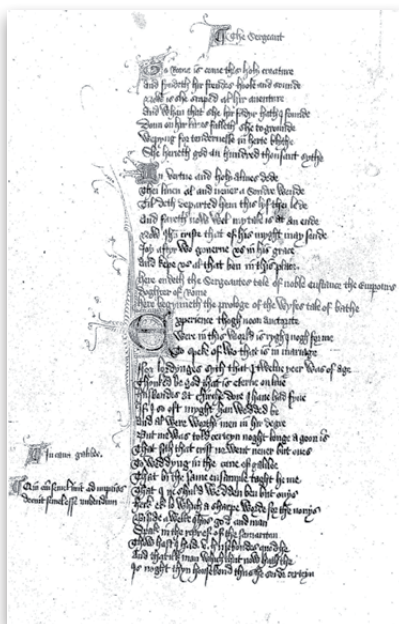 The Sergeant
To Rome is come this holy creature
And fyndeth hir frendes hoole and sounde
Now is she scaped al hir aventure
And whan that she hir fader hath yfounde
Doun on hir knees falleth she to grounde
Wepyng for tendernesse in herte blithe
She herieth god an hundred thousant sythe
In vertue and holy almes dede
They lyven al and never a sonder wende
Til deth departed hem this lyf they lede
And fareth now wel my tale is at an ende
Now Ihu crist that of his myght may sende
Joy after wo governe us in his grace
And kepe us al that ben in this place
here endeth the Sergeantes tale of noble custance the Emperours
doghter of Rome
here begynneth the prologe of the Wyfes tale of bathe
Experience thogh noon auctorite
Were in this world is ryght ynogh for me
To speke of wo that is in mariage
For lordynges syth that I twelve yeer was of age
Thonked be god that is eterne on lyve
housbondes at chirche dore I have had fyve
If I so oft myght han wedded be
And al were worthy men in hir degre
But me was told certeyn noght longe agoon is
That sith that crist ne went never but ones
To weddyng in the cane of galilee
In cana galilee
That by the same ensample taght he me
That I ne shuld wedden ben but onys
here ek
which a sharpe worde for the nonys
Beside a welle Ihus god and man
Spak in the repref of the samaritan
Thow hast yhad v housebondes quod he
And that ilk man which that now hath the
Is noght thyn housebond thus he seid certeyn